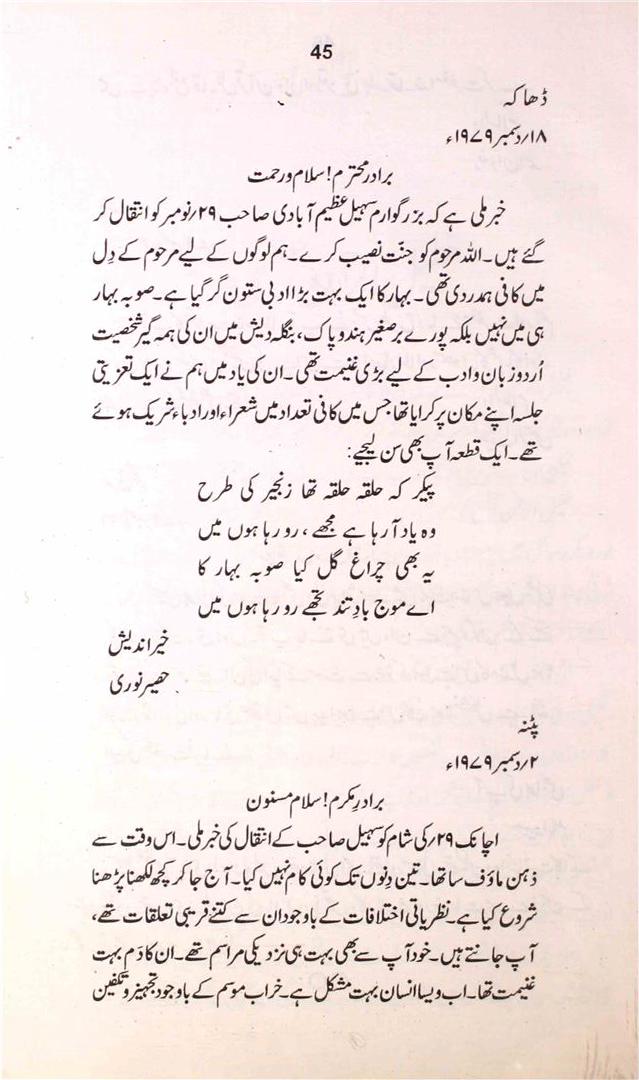 45
ڈھاکہ
۱۸/دسمبر ۱۹۷۹ء
برادر محترم! سلام و رحمت
خبر ملی ہے کہ بزرگوارم سہیل عظیم آبادی صاحب ۲۹/نومبر کو انتقال کر
گئے ہیں۔ اللہ مرحوم کو جنّت نصیب کرے۔ ہم لوگوں کے لیے مرحوم کے دِل
میں کافی ہمدردی تھی۔ بہار کا ایک بہت بڑا ادبی ستون گر گیا ہے۔ صوبہ بہار
ہی میں نہیں بلکہ پورے برصغیر ہندوپاک، بنگلہ دیش میں ان کی ہمہ گیر شخصیت
اُردو زبان و ادب کے لیے بڑی غنیمت تھی۔ ان کی یاد میں ہم نے ایک تعزیتی
جلسہ اپنے مکان پر کرایا تھا جس میں کافی تعداد میں شعراء اور ادباء شریک ہوئے
تھے۔ ایک قطعہ آپ بھی سن لیجیے:
پیکر کہ حلقہ حلقہ تھا زنجیر کی طرح
وہ یاد آرہا ہے مجھے، رو رہا ہوں میں
یہ بھی چراغ گل کیا صوبہ بہار کا
اے موج بادِ تند تجھے رو رہا ہوں میں
خیراندیش
حصیر نوری
پٹنہ
۲/دسمبر ۱۹۷۹ء
برادرِ مکرم! سلام مسنون
اچانک ۲۹/کی شام کو سہیل صاحب کے انتقال کی خبر ملی۔ اس وقت سے
ذہن ماؤف سا تھا۔ تین دِنوں تک کوئی کام نہیں کیا۔ آج جا کر کچھ لکھنا پڑھنا
شروع کیا ہے۔ نظریاتی اختلافات کے باوجود ان سے کتنے قریبی تعلقات تھے،
آپ جانتے ہیں۔ خود آپ سے بھی بہت ہی نزدیکی مراسم تھے۔ ان کا دَم بہت
غنیمت تھا۔ اب ویسا انسان بہت مشکل ہے۔ خراب موسم کے باوجود تجہیز و تکفین